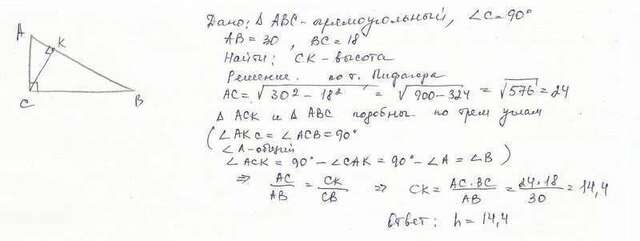 A
K
C
B
Дано: Δ ABC - прямоугольный, ∠C=90°
AB = 30, BC = 18
Найти: CK - высота
Решение. по т. Пифагора
AC = √(30² - 18²) = √(900 - 324) = √576 = 24
Δ ACK и Δ ABC подобны по трем углам
(∠AKC = ∠ACB = 90°
∠A - общий
∠ACK = 90° - ∠CAK = 90° - ∠A = ∠B)
⇒ AC/AB = CK/CB ⇒ CK = AC·BC/AB = 24·18/30 = 14,4
Ответ: h = 14,4